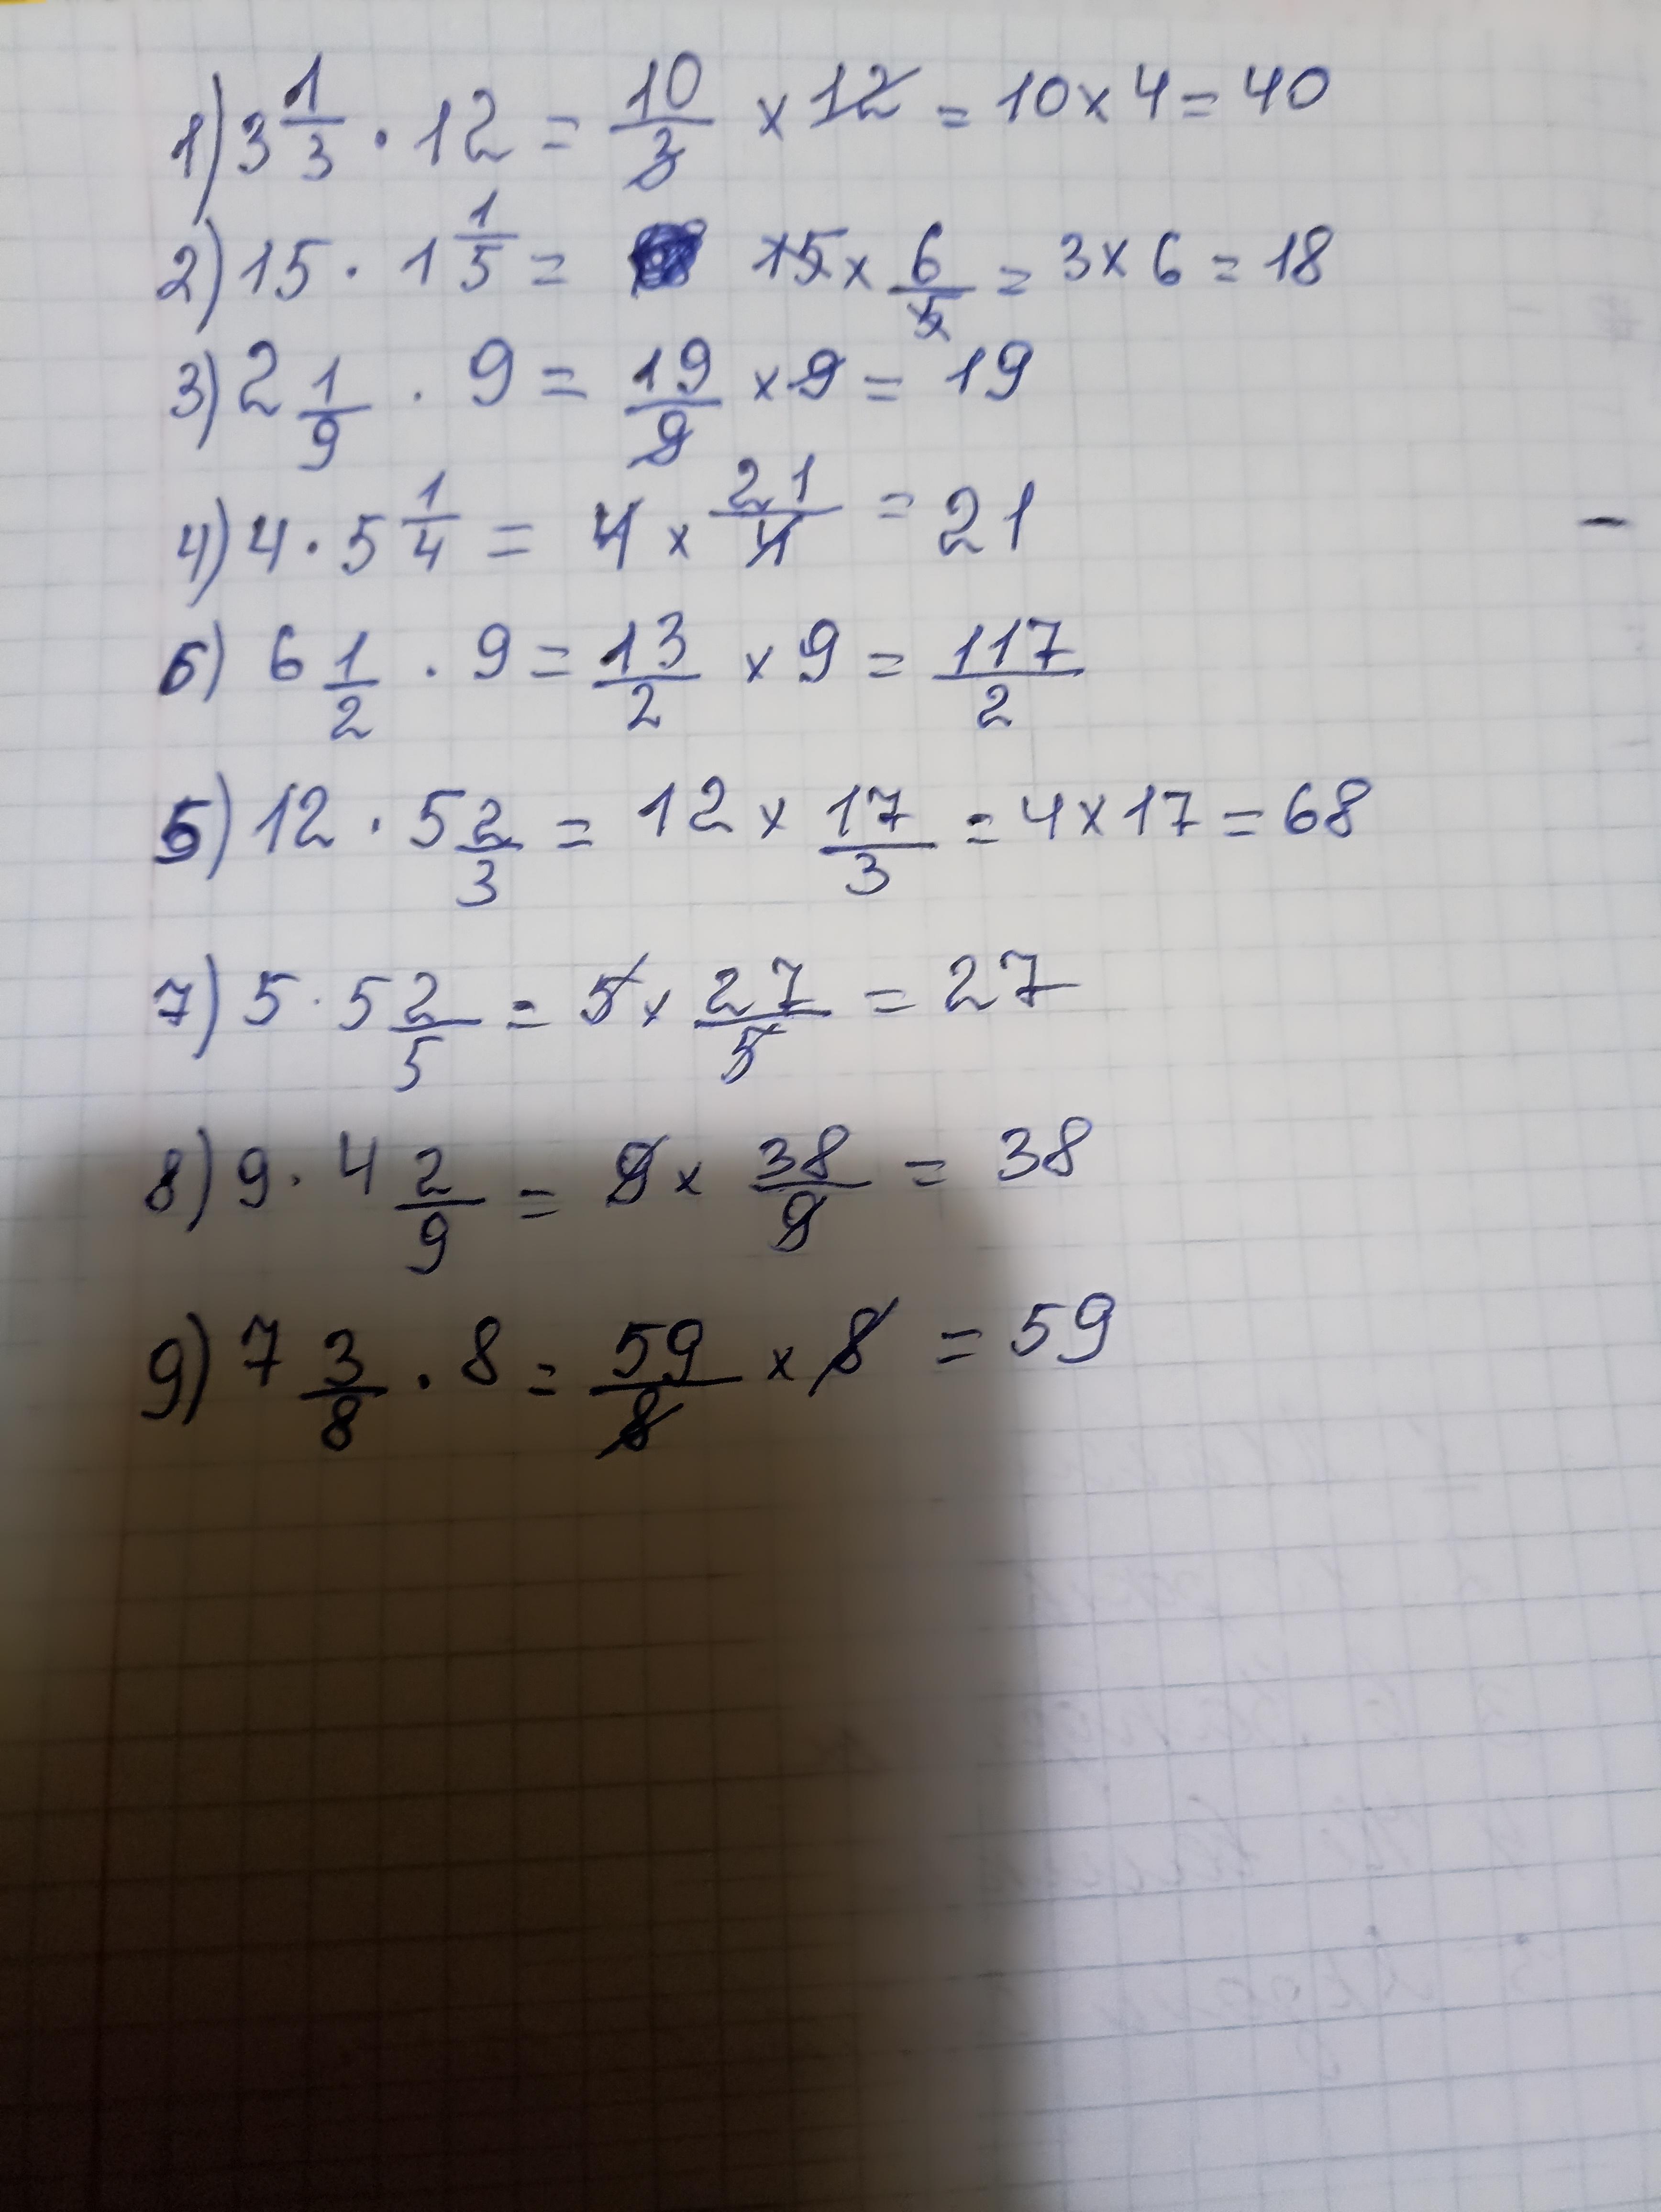 1) 3 1/3 · 12 = 10/3 x 12 = 10 x 4 = 40
2) 15 · 1 1/5 = 15 x 6/5 = 3 x 6 = 18
3) 2 1/9 · 9 = 19/9 x 9 = 19
4) 4 · 5 1/4 = 4 x 21/4 = 21
6) 6 1/2 · 9 = 13/2 x 9 = 117/2
5) 12 · 5 2/3 = 12 x 17/3 = 4 x 17 = 68
7) 5 · 5 2/5 = 5 x 27/5 = 27
8) 9 · 4 2/9 = 9 x 38/9 = 38
9) 7 3/8 · 8 = 59/8 x 8 = 59